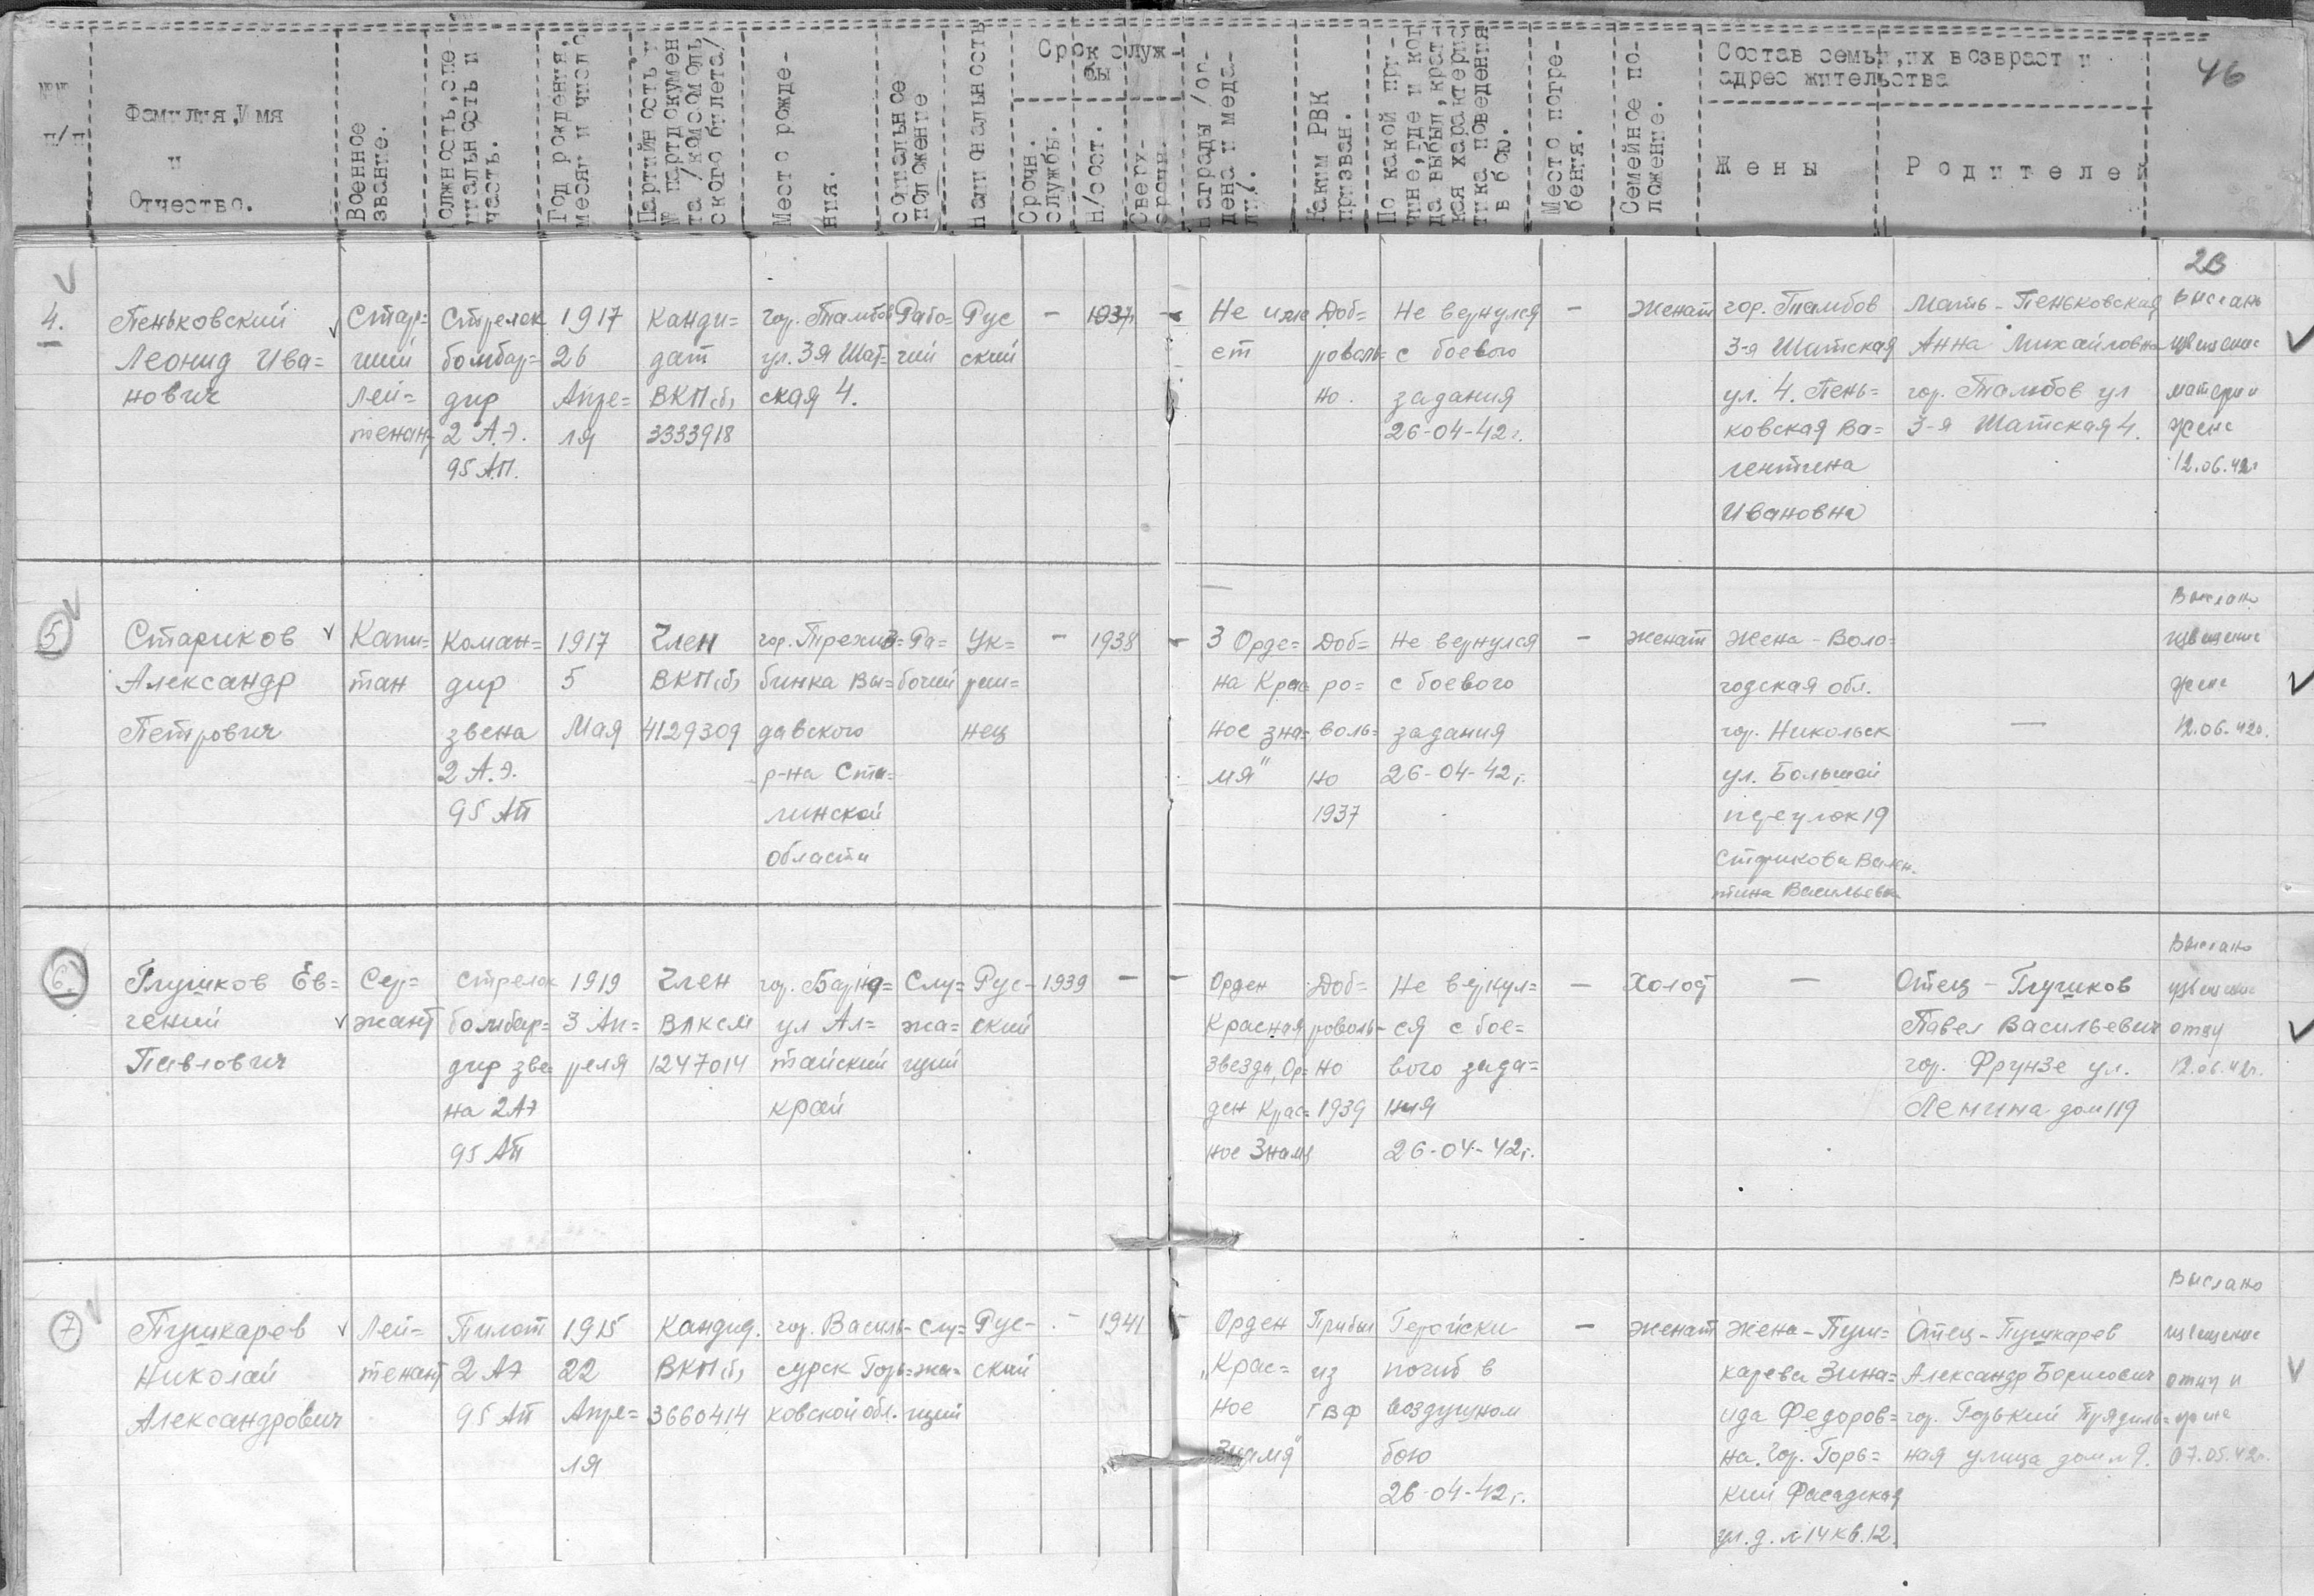 46
№№ п/п
Фамилия, Имя и Отчество.
Военное звание.
Должность, специальность и часть.
Год рождения, месяц и число
Партийность и № партдокумента /комсомольского билета/
Место рождения.
Социальное положение
Национальность
Срок службы
Срочн. службы.
Н/сост.
Сверх-срочн.
Награды /ордена и медали/.
Каким РВК призван.
По какой причине, где и когда выбыл, краткая характеристика поведения в бою.
Место погребения.
Семейное положение.
Состав семьи, их возраст и адрес жительства
Жены
Родителей
4.
Пеньковский
Леонид Ива=
нович
Стар=
ший
лей=
тенант
Стрелок
бомбар=
дир
2 А.Э.
95 АП.
1917
26
Апре=
ля
Канди=
дат
ВКП(б)
3333918
гор. Тамбов
ул. 3я Шат=
ская 4.
Рабо=
чий
Рус
ский
-
1937
-
Не име
ет
Доб=
роволь=
но.
Не вернулся
с боевого
задания
26-04-42г.
-
Женат
гор. Тамбов
3-я Шатская
ул. 4. Пень=
ковская Ва=
лентина
Ивановна
Мать - Пеньковская
Анна Михайловна
гор. Тамбов ул
3-я Шатская 4.
Выслано
извещение
матери и
жене
12.06.42г
5
Стариков
Александр
Петрович
Капи=
тан
Коман=
дир
звена
2 А.Э.
95 АП
1917
5
Мая
Член
ВКП(б)
4129309
бинка Вы=
давского
р-на Ста=
линской
области
Ра=
бочий
Ук=
раи=
нец
-
1938
-
3 Орде=
на Крас
ное зна=
мя"
Доб=
ро=
воль=
но
1937
Не вернулся
с боевого
задания
26-04-42г.
-
женат
Жена - Воло=
годская обл.
гор. Никольск
ул. Большой
переулок 19
Старикова Вален.
тина Васильевна
-
Выслано
извещение
жене
12.06.42г.
6.
Глушков Ев=
гений
Павлович
Сер=
жант
Стрелок
бомбар=
дир зве
на 2АЭ
95 АП
1919
3 Ап=
реля
Член
ВЛКСМ
1247014
гор. Барна=
ул Ал=
тайский
край
Слу=
жа=
щий
Рус-
ский
1939
-
-
Орден
Красная
звезда, Ор=
ден Крас=
ное Знамя
Доб=
роволь-
но
1939
Не вернул=
ся с бое=
вого зада=
ния
26-04-42г.
-
Холост
-
Отец - Глушков
Павел Васильевич
гор. Фрунзе ул.
Ленина дом 119
Выслано
извещение
отцу
12.06.42г.
7
Пушкарев
Николай
Александрович
Лей=
тенант
Пилот
2 АЭ
95 АП
1915
22
Апре=
ля
Кандид.
ВКП(б)
3660414
гор. Василь-
сурск Горь=
ковской обл.
Слу=
жа=
щий
Рус-
ский
-
1941
-
Орден
"Крас=
ное
Знамя"
Прибыл
из
ГВФ
Геройски
погиб в
воздушном
бою
26-04-42г.
-
женат
Жена - Пуш=
карева Зина=
ида Федоров=
на. Гор. Горь=
кий Фасадская
ул. д. № 14 кв. 12.
Отец - Пушкарев
Александр Борисович
гор. Горький Прядиль=
ная улица дом № 9.
Выслано
извещение
отцу и
жене
07.05.42г.